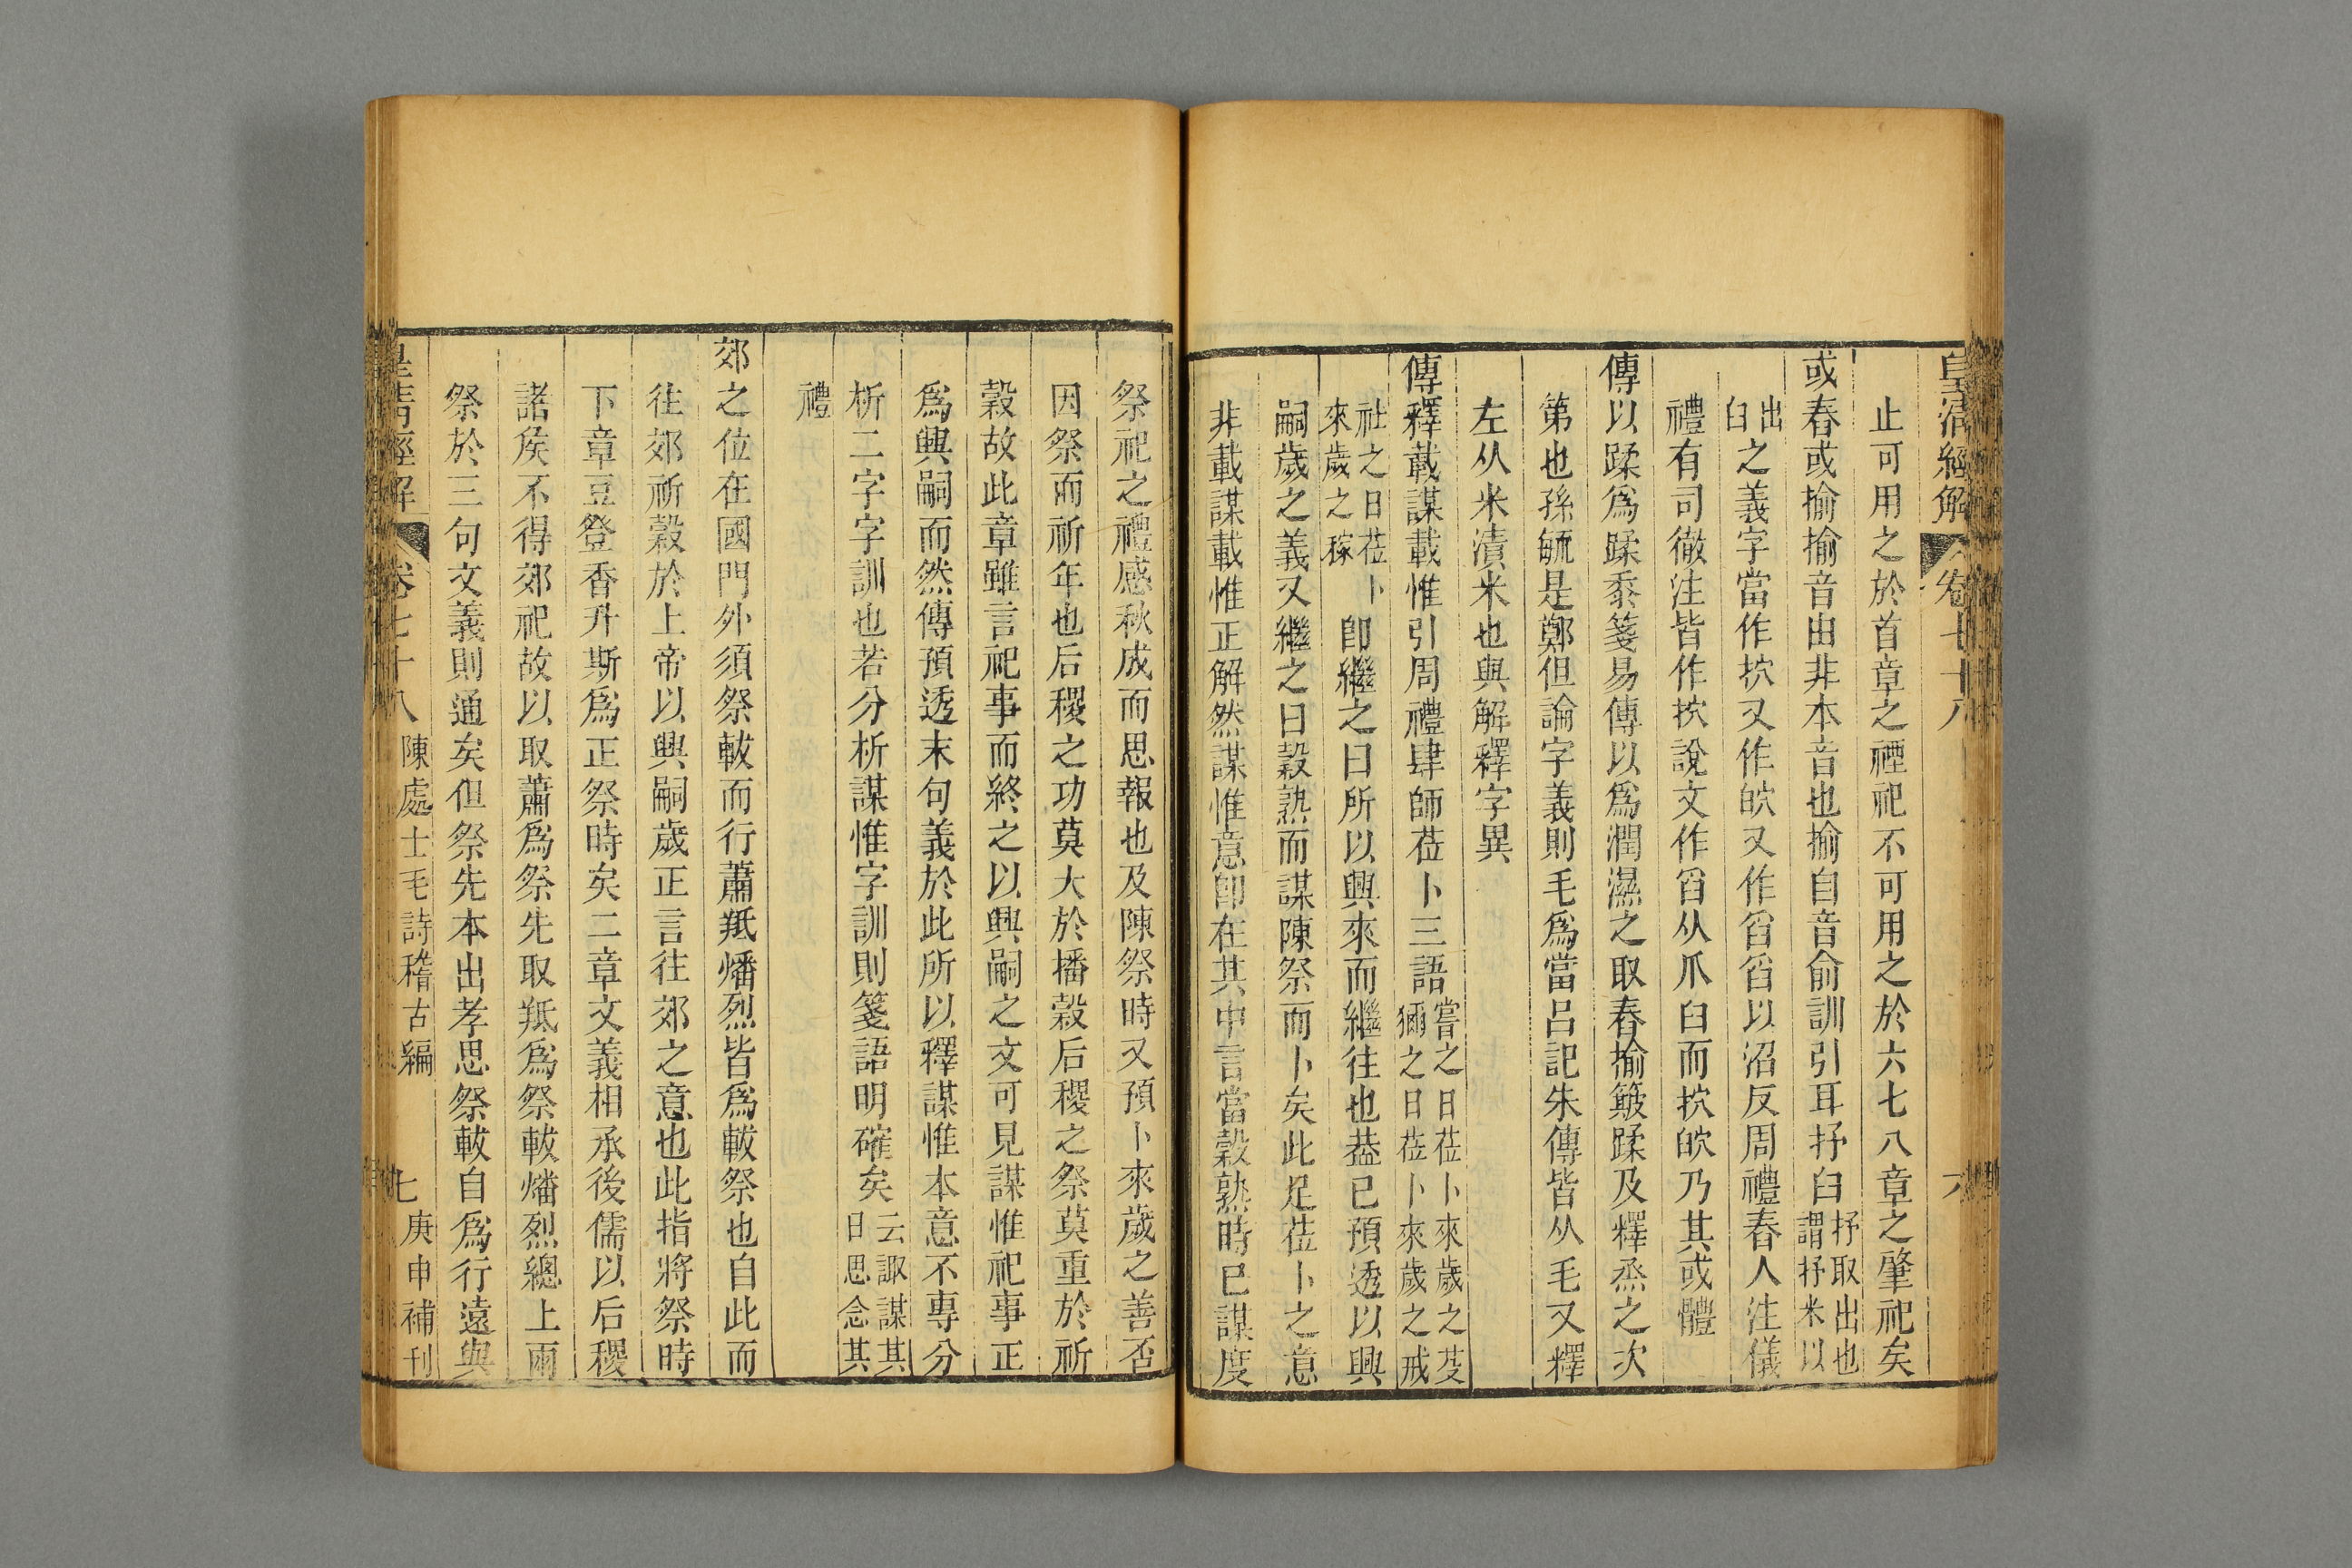 皇清經解 卷七十八 六
止可用之於首章之禋祀不可用之於六七八章之肇祀矣
或舂或揄揄音由非本音也揄自音俞訓引耳抒臼抒取出也謂抒米以
出臼之義字當作抌又作㽱又作舀舀以沼反周禮舂人注儀
禮有司徹注皆作抌說文作舀从爪臼而抌㽱乃其或體
傳以蹂爲蹂黍箋易傳以爲潤濕之取舂揄簸蹂及釋烝之次
第也孫毓是鄭但論字義則毛爲當呂記朱傳皆从毛又釋
左从米漬米也與解釋字異
傳釋載謀載惟引周禮肆師莅卜三語嘗之日莅卜來歲之芟獮之日莅卜來歲之戒
社之日莅卜來歲之稼卽繼之曰所以興來而繼往也葢已預透以興
嗣歲之義又繼之曰穀熟而謀陳祭而卜矣此足莅卜之意
非載謀載惟正解然謀惟意卽在其中言當穀熟時已謀度
祭祀之禮感秋成而思報也及陳祭時又預卜來歲之善否
因祭而祈年也后稷之功莫大於播穀后稷之祭莫重於祈
穀故此章雖言祀事而終之以興嗣之文可見謀惟祀事正
爲興嗣而然傳預透末句義於此所以釋謀惟本意不專分
析二字字訓也若分析謀惟字訓則箋語明確矣云諏謀其日思念其
禮
郊之位在國門外須祭軷而行蕭羝燔烈皆爲軷祭也自此而
往郊祈穀於上帝以興嗣歲正言往郊之意也此指將祭時
下章豆登香升斯爲正祭時矣二章文義相承後儒以后稷
諸侯不得郊祀故以取蕭爲祭先取羝爲祭軷燔烈總上兩
祭於三句文義則通矣但祭先本出孝思祭軷自爲行遠與
皇清經解 卷七十八 陳處士毛詩稽古編 七 庚申補刊